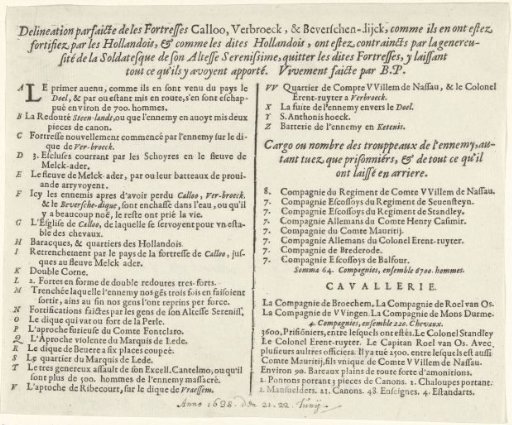 Delineation parfaicte de les Fortresses Calloo, Verbroeck, & Beverschen-dijck, comme ils en ont estez
fortifiez par les Hollandois, & comme les dites Hollandois, ont estez contraincts par la genereu-
sité de la Soldatesque de son Altesse Serenissime, quitter les dites Fortresses, y laissant
tout ce qu'ils y avoyent apporté. Vivement faicte par B.P.
A LE primer auenu, comme ils en sont venu pays le
Doel, & par ou estant mis en route, s'en sont eschap-
pué environ de 700. hommes.
B La Redouté Steen-lande, ou que l'ennemy en auoyt mis deux
pieces de canon.
C Fortresse nouvellement commencé par l'ennemy sur le di-
que de Ver-broeck.
D 3. Escluses courant par les Schoyres en le fleuve de
Melck-ader.
E Le fleuve de Melck-ader, par ou leur batteaux de proui-
ande arryvoyent.
F Icy les ennemis apres d'avoir perdu Calloo, Ver-broeck,
& le Beversche-dique, sont enchassé dans l'eau, ou qu'il
y a beaucoup noé, le reste ont prié la vie.
G L'Esglise de Calloo, de laquelle se servoyent pour vn esta-
ble des chevaux.
H Baracques, & quartiers des Hollandois.
I Retrenchement par le pays de la fortresse de Calloo, jus-
ques au fleuve Melck-ader.
K Double Corne.
L 2. Fortes en forme de double redoutes tres-forts.
M Trenchée laquelle l'ennemy nos gés trois fois en faisoient
sortir, ains au fin nos gens l'ont reprins per force.
N Fortifications faictes par les gens de son Altesse Sereniss.
O Le dique qui va ou fort de la Perle.
P L'aproche furieuse du Comte Fonteclaro.
Q L'Aproche violence du Marquis de Lede.
R Le dique de Beuere a six places coupeé.
S Le quartier du Marquis de Lede.
T Le tres genereux assault de son Excell. Cantelmo, ou qu'il
sont plus de 500. hommes de l'ennemy massacré.
V L'aproche de Ribecourt, sur le dique de Vraessem.
VV Quartier de Compte VVillem de Nassau, & le Colonel
Erent-ruyter a Verbroeck.
X La fuite de l'ennemy envers le Doel.
Y S. Anthonis hoeck.
Z Batterie de l'ennemy en Ketenis.
Cargo ou nombre des trouppeaux de l'ennemy, au-
tant tuez que prisonniers, & de tout ce qu'il
ont laissé en arriere.
8. Compagnie du Regiment de Comte VVillem de Nassau.
7. Compagnie Escossoys du Regiment de Seuensteyn.
7. Compagnie Escossoys du Regiment de Standley.
7. Compagnie Allemans du Comte Henry Casimir.
7. Compagnie du Comte Mauritij.
7. Compagnie Allemans du Colonel Erent-ruyter.
7. Compagnie de Brederode.
7. Compagnie Escossoys de Balfour.
Somma 64. Compagnies, ensemble 6700. hommes.
CAVALLERIE.
La Compagnie de Broechem, La Compagnie de Roel van Os.
La Compagnie de VVingen. La Compagnie de Mons Durme.
4. Compagnies, ensemble 220. Chevaux.
3600, Prisoniers, entre lesquels ont estés. Le Colonel Standley
Le Colonel Erent-ruyter. Le Capitan Roel van Os. Avec
plusieurs autres officiers. Il ya tué 2500. entre lesquels est aussi
Comte Mauritij, fils vnique de Comte VVillem de Nassau.
Environ 90. Bateaux plains de toute sorte d'amonitions.
2. Pontons portant 3 pieces de Canons. 1. Chaloupes portant
2. Mansfelders. 21. Canons. 48. Enseignes. 4. Estandarts.
Anno 1638. den 21. 22. Iunij.